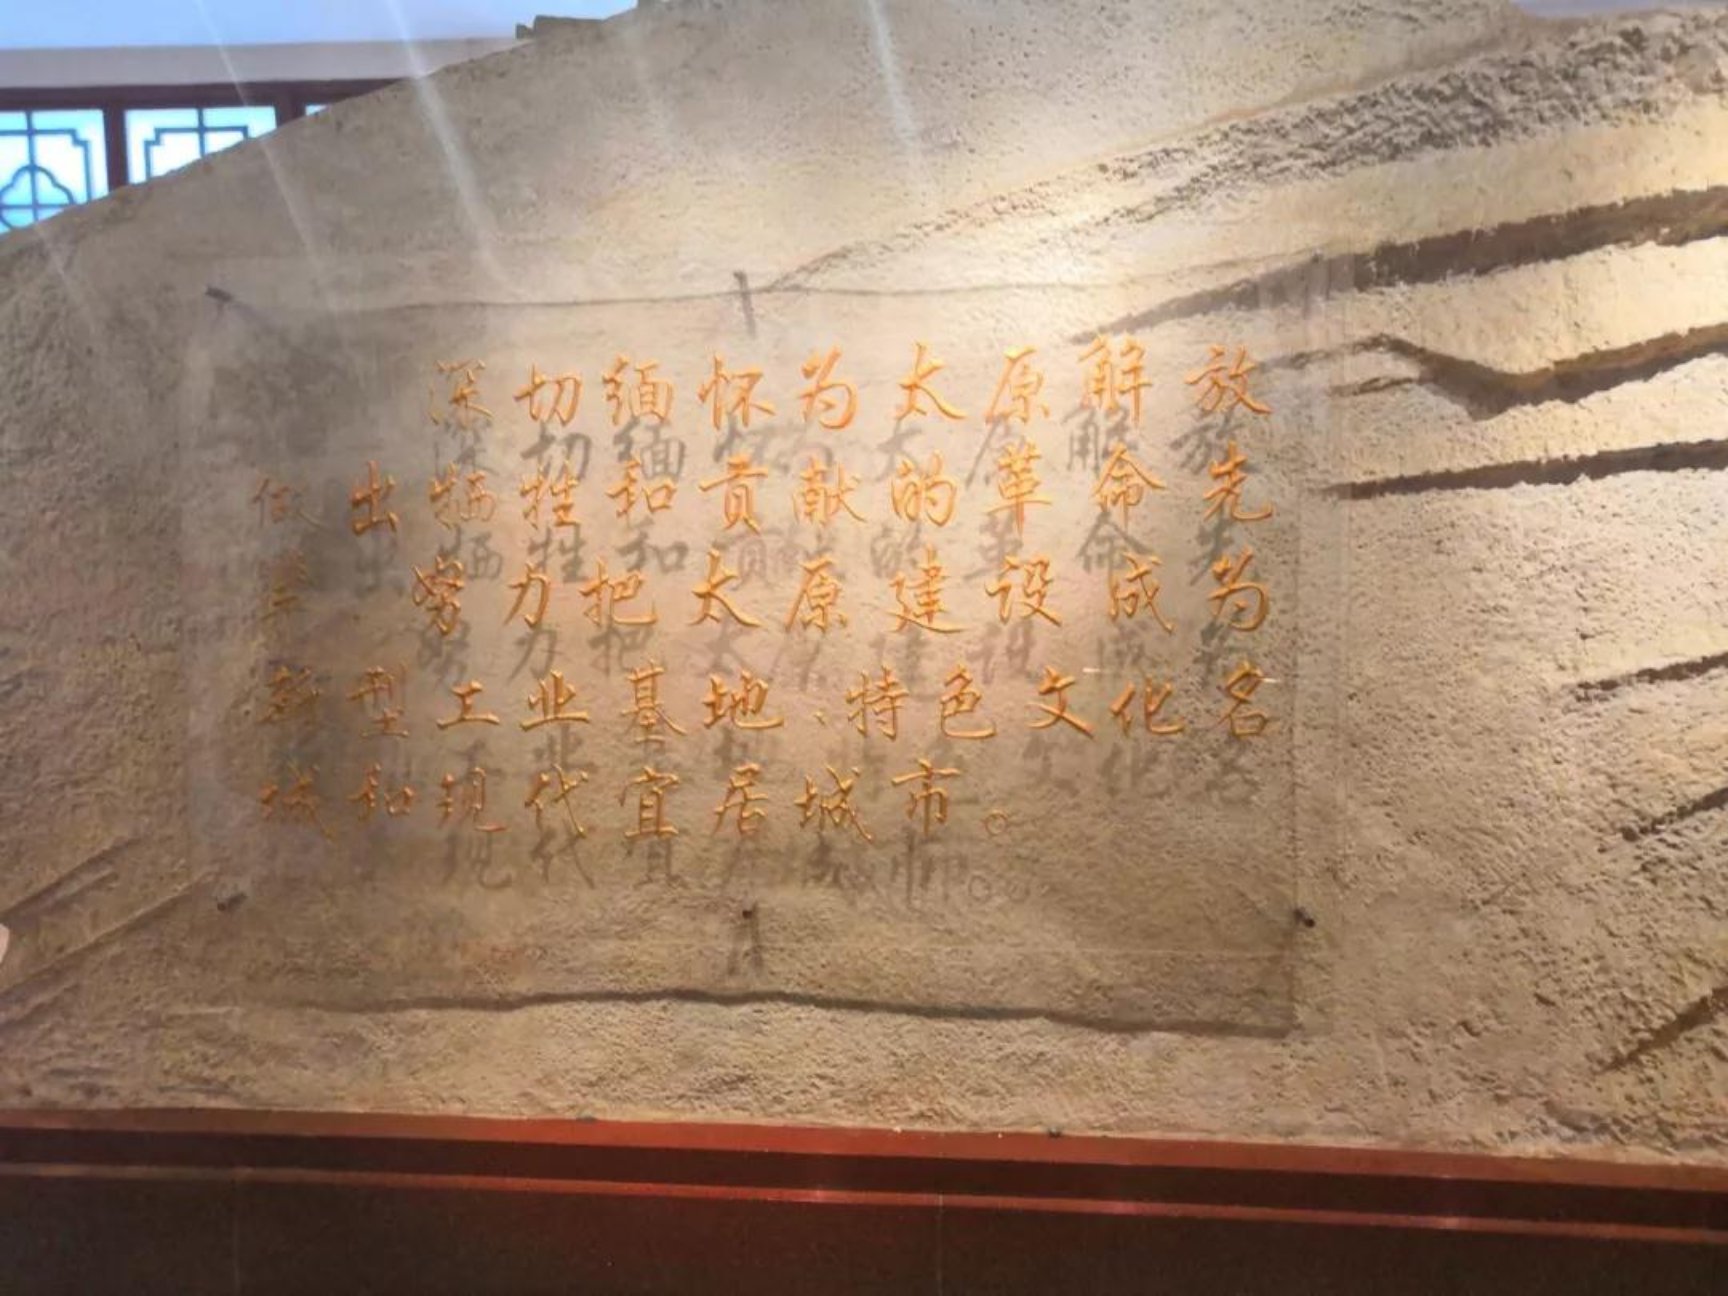 深切缅怀为太原解放
做出牺牲和贡献的革命先
努力把太原建设成为
新型工业基地、特色文化名
城和现代宜居城市。